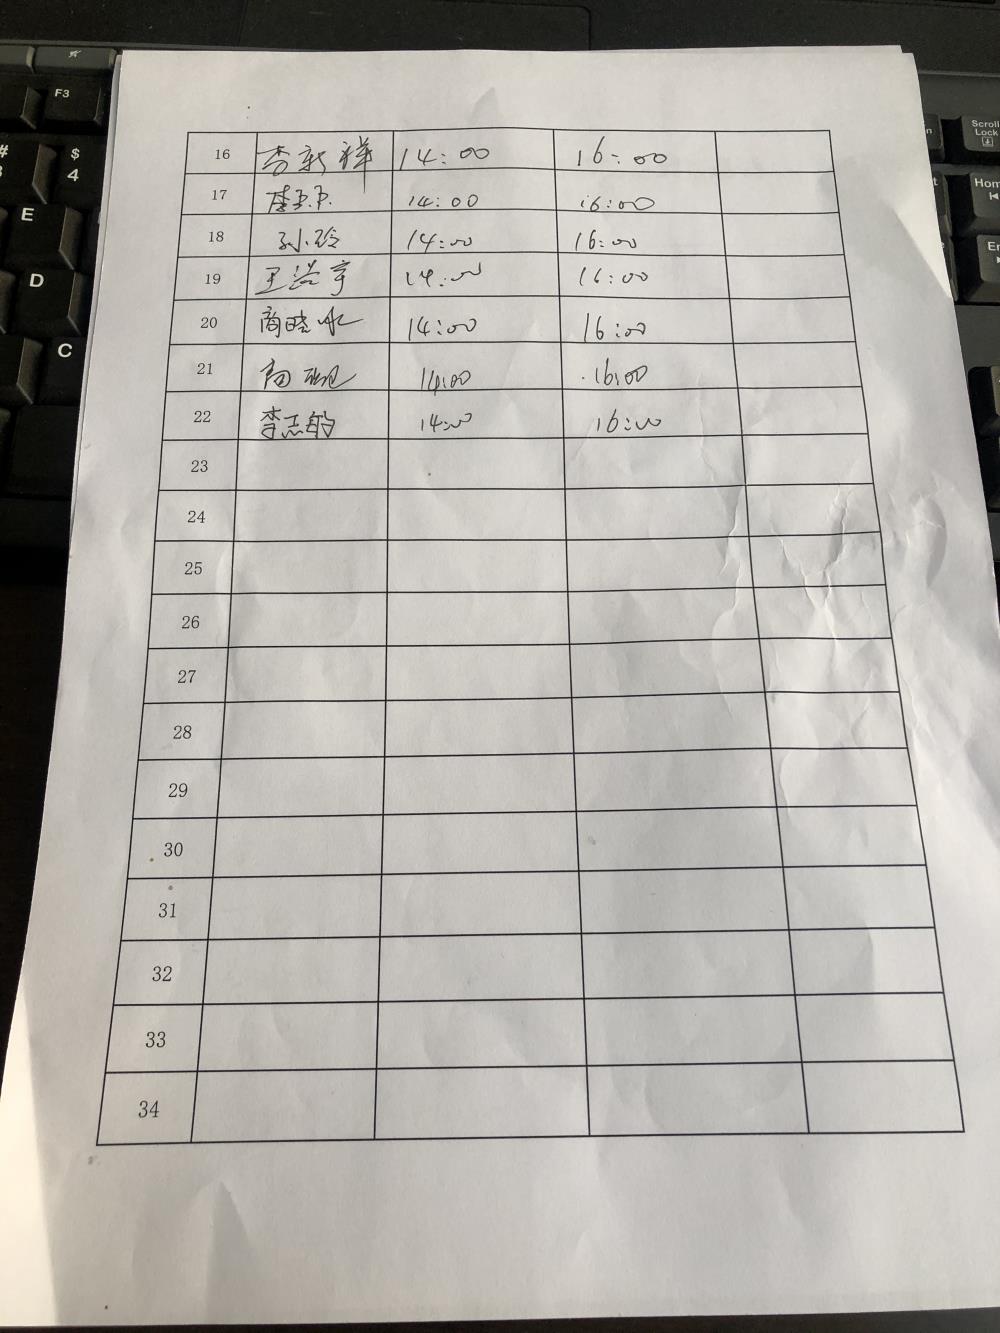 16 李新祥 14:00 16:00
17 李 14:00 16:00
18 孙玲 14:00 16:00
19 王浩宇 14:00 16:00
20 商晓冰 14:00 16:00
21 14:00 16:00
22 李志敏 14:00 16:00
23
24
25
26
27
28
29
30
31
32
33
34
F3
#
$
4
E
D
C
Scroll
Lock
Hom